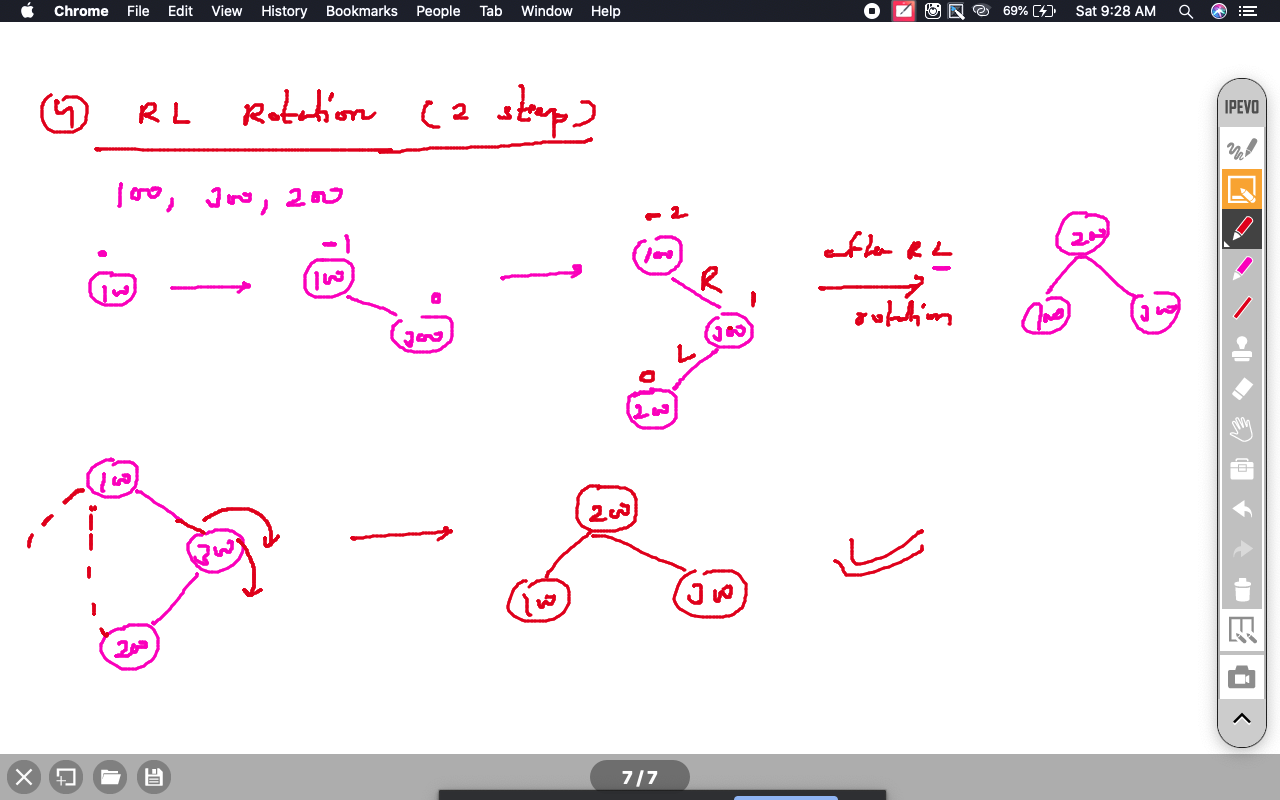 Chrome File Edit View History Bookmarks People Tab Window Help 69% Sat 9:28 AM
IPEVO
4 RL Rotation (2 step)
100, 300, 200
0 -1 0 -2 1 0
100 100 300 100 R 300 L 200 after RL rotation 200 100 300
100 300 200 200 100 300
7/7